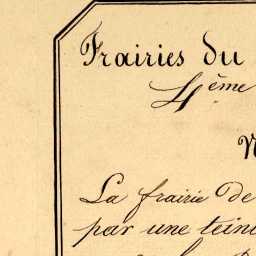 Frairies du
4ème
La frairie de
par une